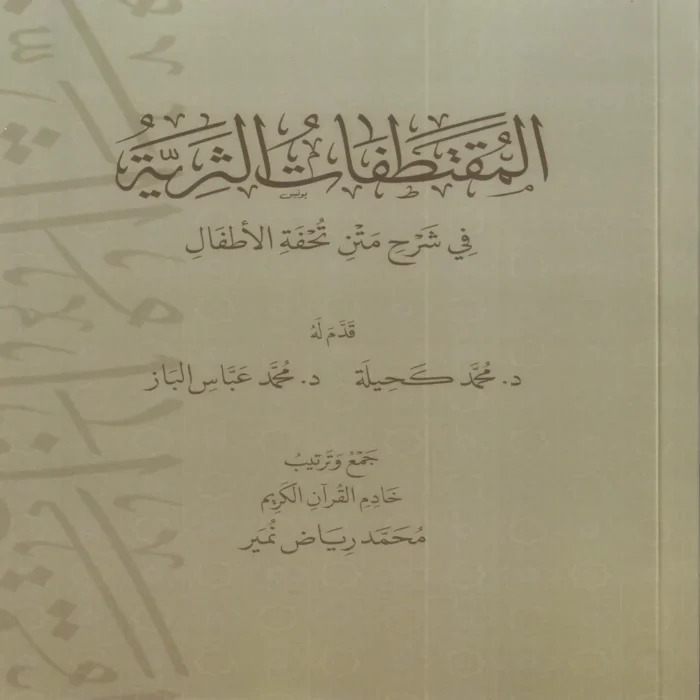 المُقْتَطَفَاتُ الثَّرِيَّةُ
فِي شَرْحِ مَتْنِ تُحْفَةِ الأَطْفَالِ
قَدَّمَ لَهُ
د. مُحَمَّد كَحِيلَة    د. مُحَمَّد عَبَّاس البَاز
جَمْعُ وَتَرْتِيبُ
خَادِمِ القُرْآنِ الكَرِيمِ
مُحَمَّد رِيَاض نُمَيِر